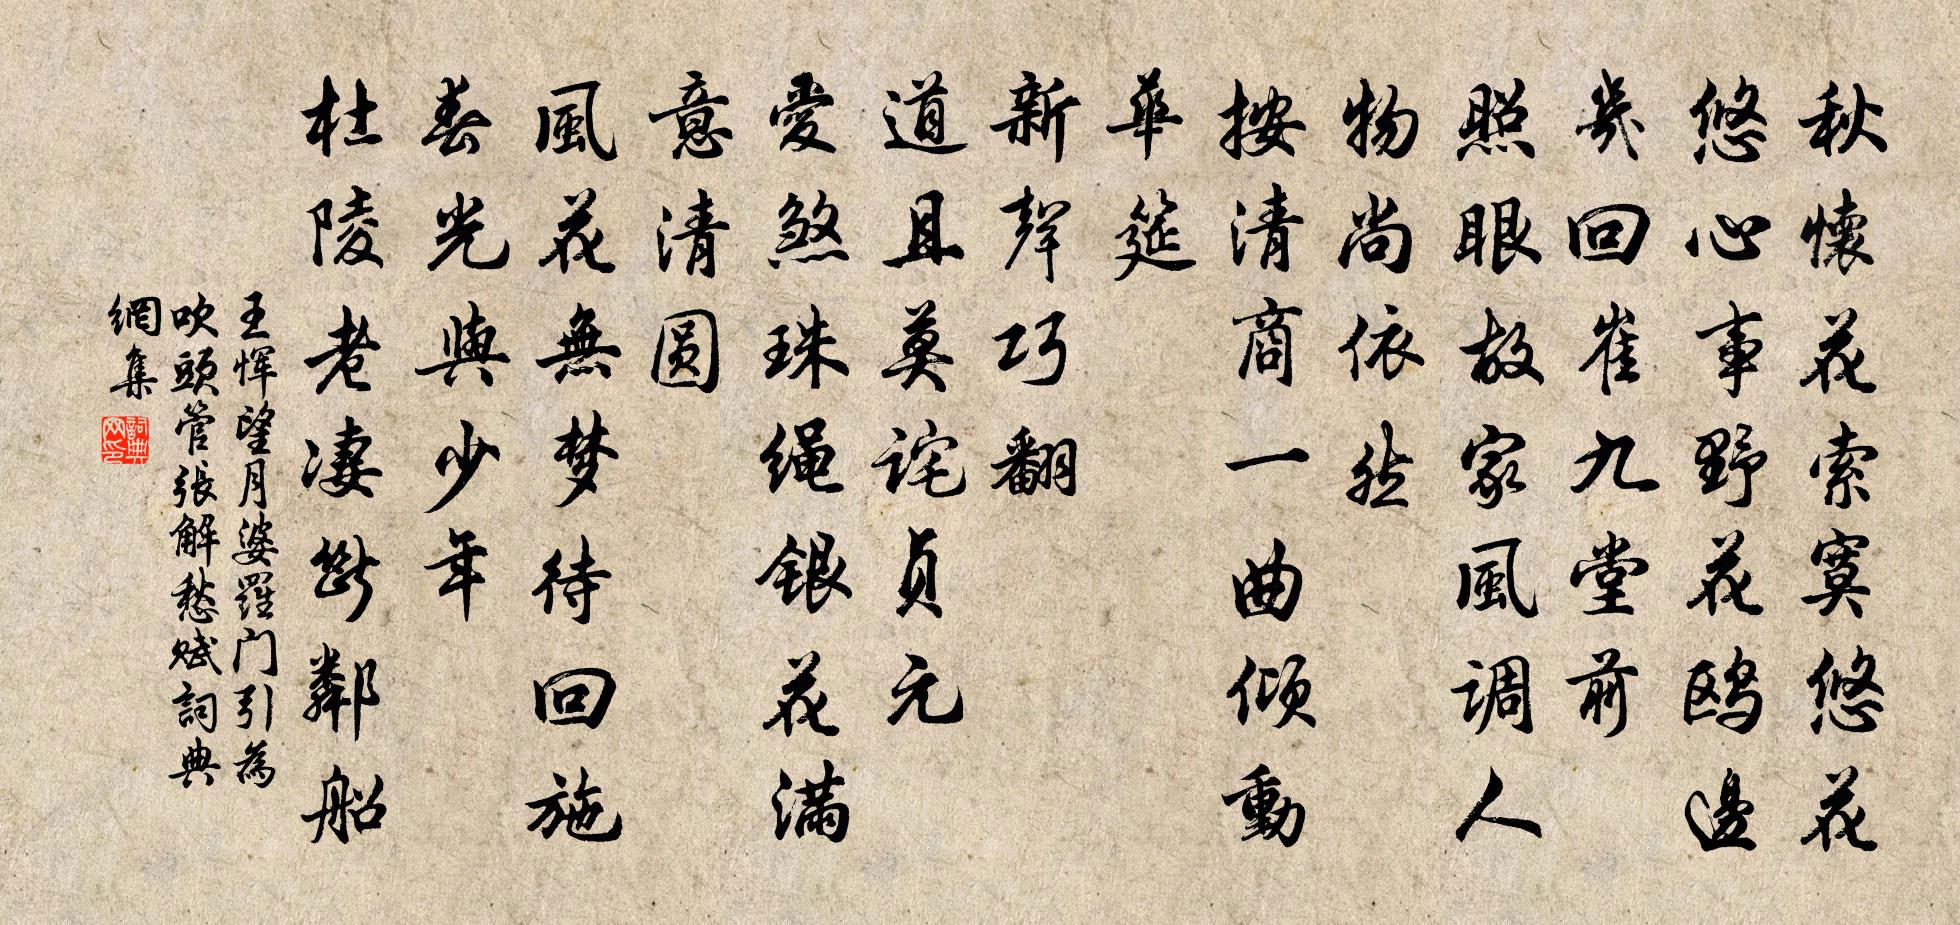 秋懷花索寞悠花
悠心事野花鸥邊
幾回崔九堂前
照眼故家風调人
物尚依然
按清商一曲倾動
華筵
新聲巧翻
道且莫诧贞元
愛煞珠绳银花满
意清圆
風花無梦待回施
春光與少年
杜陵老凄断鄰船
王恽望月婆羅门引為
吹頭管張解愁赋詞典
網集
詞典網印